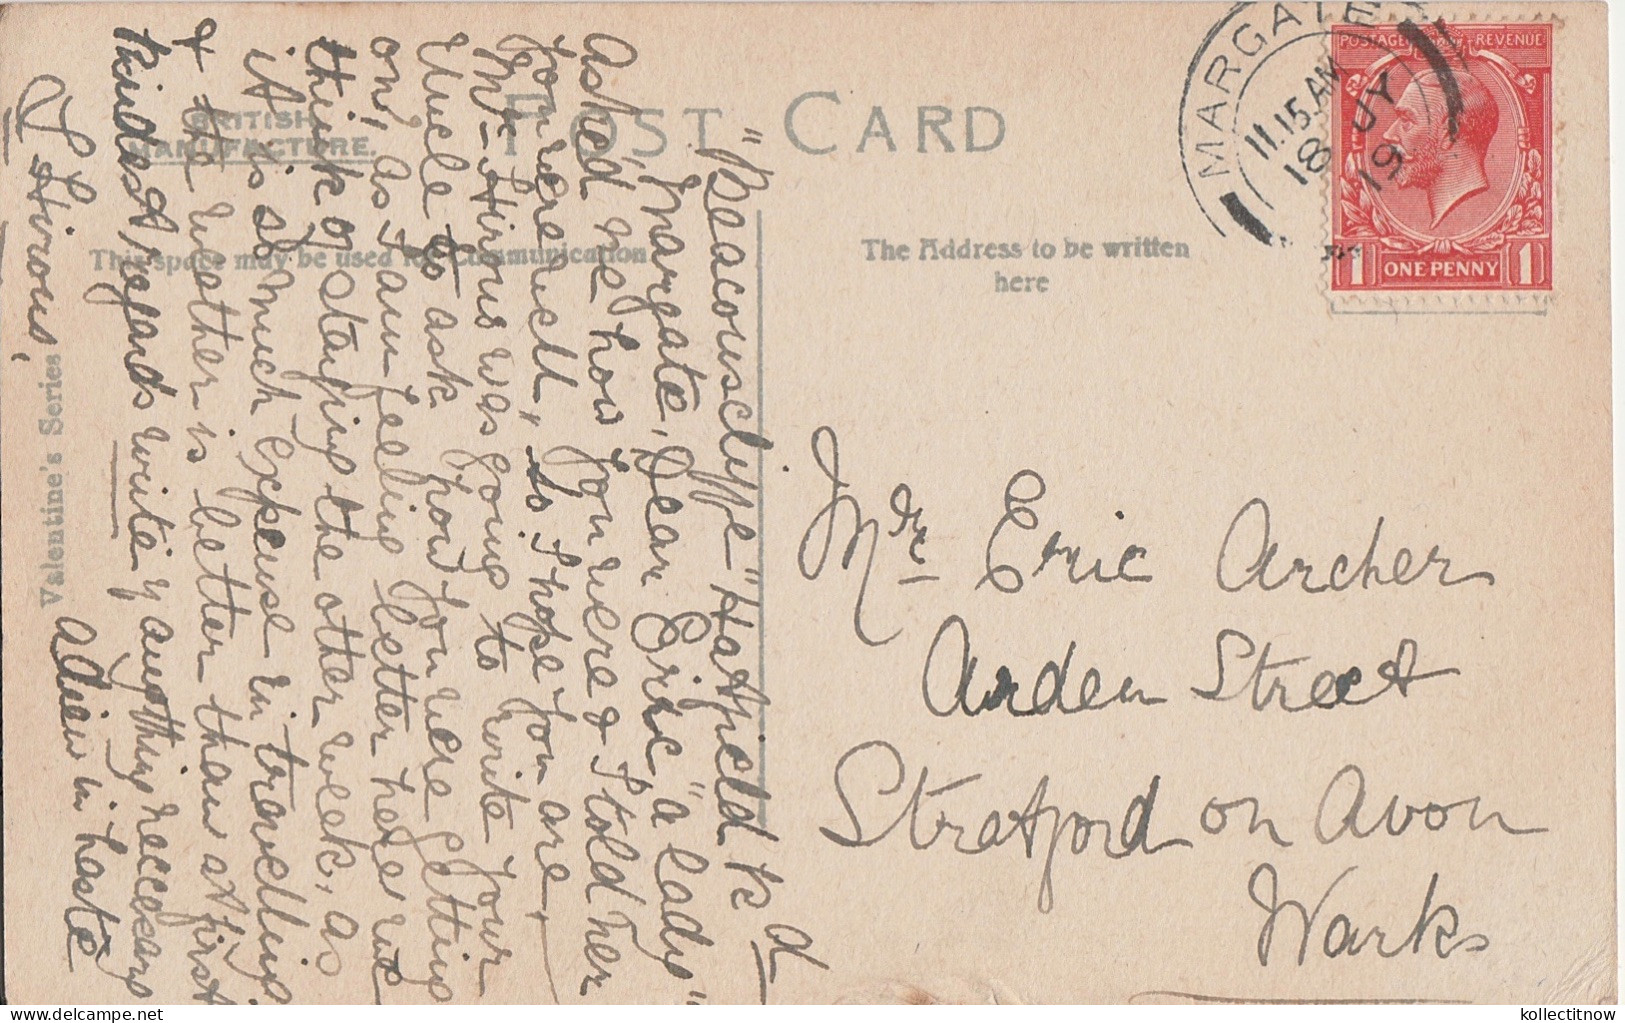 POST CARD
BRITISH
MANUFACTURE.
This space may be used for Communication
The Address to be written
here
Valentine's Series
MARGATE
11.15 AM
18 JY
19
POSTAGE REVENUE
1 ONE PENNY 1
"Beaconscliffe" Hatfield Rd
Margate, Dear Eric, "a lady"
asked me how you were & I told her
you were well, so I hope you are,
Mr Sirous was going to write your
Uncle to ask how you were getting
on, as I am feeling better here
think of staying the other week, as
it is so much Expense in travelling
& the weather is better than at first
kindest regards write if anything necessary
adieu in haste
J Sirous,
Mr Eric Archer
Arden Street
Stratford on Avon
Warks
kollectitnow